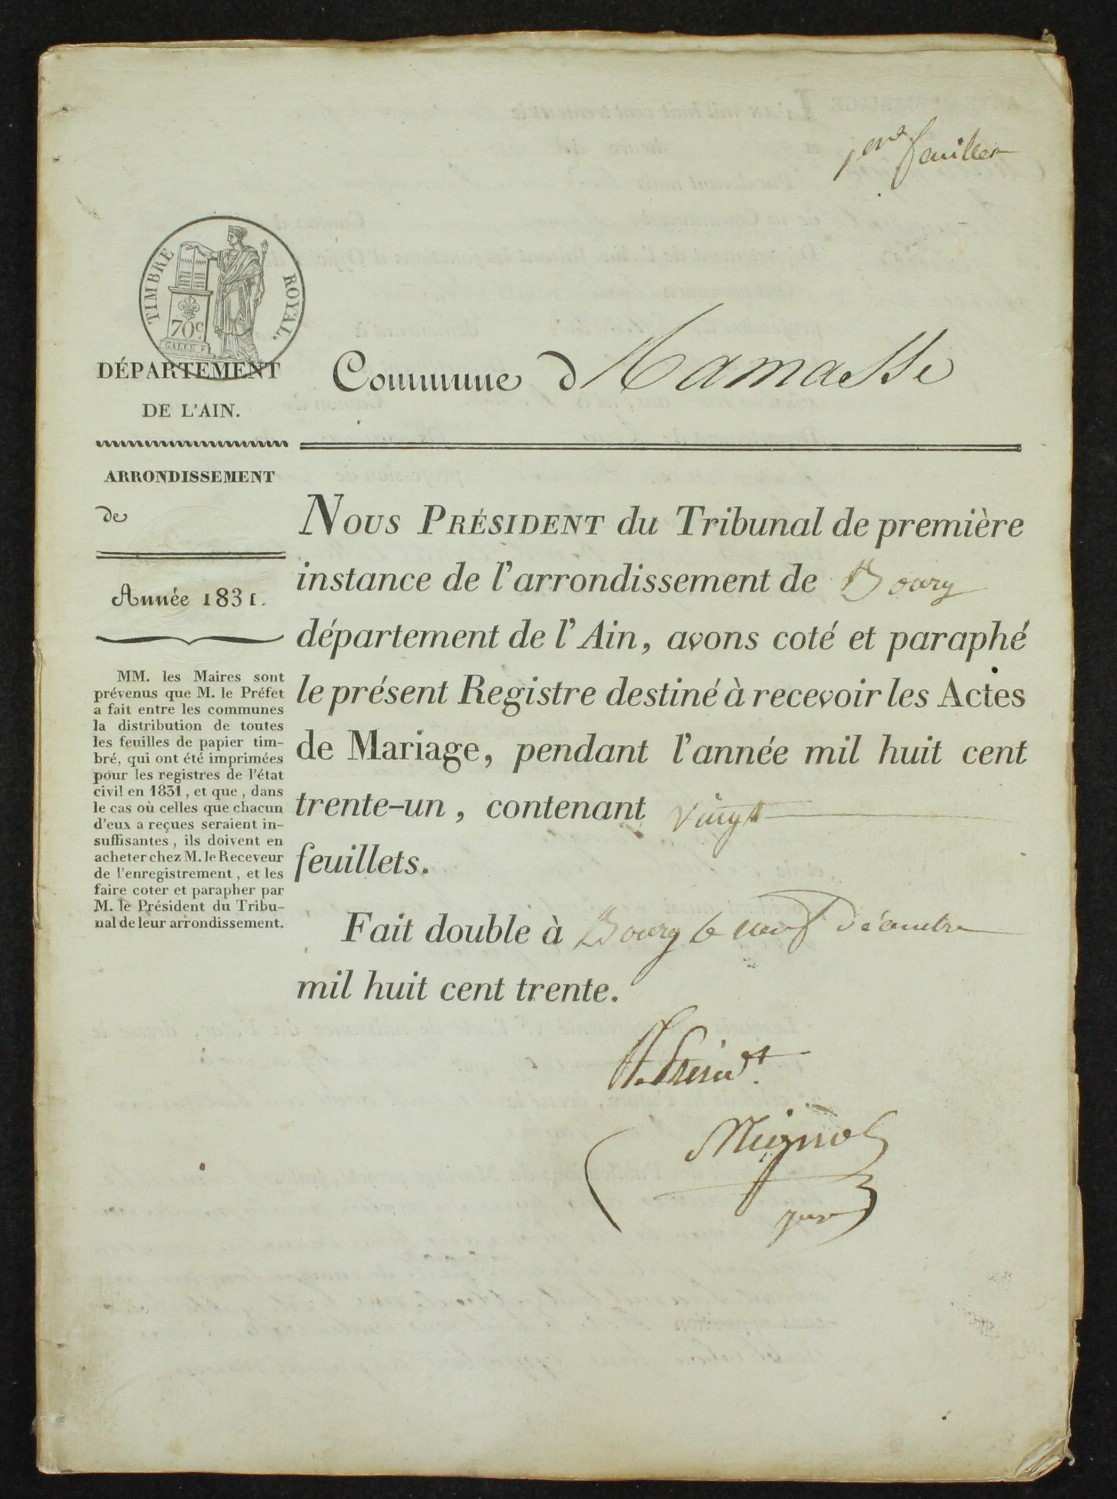 1er feuillet
TIMBRE ROYAL.
70c
DÉPARTEMENT
DE L'AIN.
Commune d Ramasse
ARRONDISSEMENT
de
Année 1831.
MM. les Maires sont
prévenus que M. le Préfet
a fait entre les communes
la distribution de toutes
les feuilles de papier tim-
bré, qui ont été imprimées
pour les registres de l'état
civil en 1831, et que, dans
le cas où celles que chacun
d'eux a reçues seraient in-
suffisantes, ils doivent en
acheter chez M. le Receveur
de l'enregistrement, et les
faire coter et parapher par
M. le Président du Tribu-
nal de leur arrondissement.
NOUS PRÉSIDENT du Tribunal de première
instance de l'arrondissement de Bourg
département de l'Ain, avons coté et paraphé
le présent Registre destiné à recevoir les Actes
de Mariage, pendant l'année mil huit cent
trente-un, contenant vingt
feuillets.
Fait double à Bourg le neuf Décembre
mil huit cent trente.